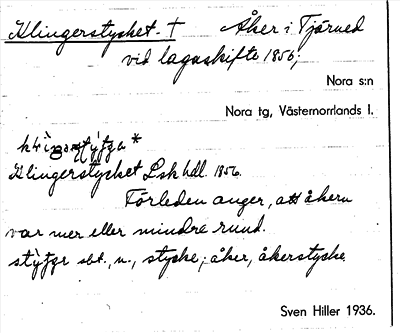 Klingerstycket. † Åker i Tjärned
vid lagaskifte 1856;
Nora s:n
Nora tg, Västernorrlands l.
Klingerstycket Lsk hdl. 1856.
Förleden anger, att åkern
var mer eller mindre rund.
sbt., n., stycke; åker, åkerstycke
Sven Hiller 1936.